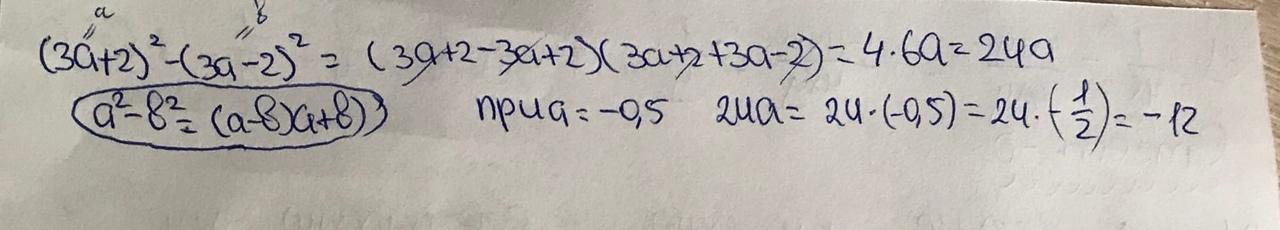 a в
(3a+2)²-(3a-2)² = (3a+2-3a+2)(3a+2+3a-2) = 4·6a = 24a
a²-в² = (a-в)(a+в) при a = -0,5 24a = 24·(-0,5) = 24·(-1/2) = -12